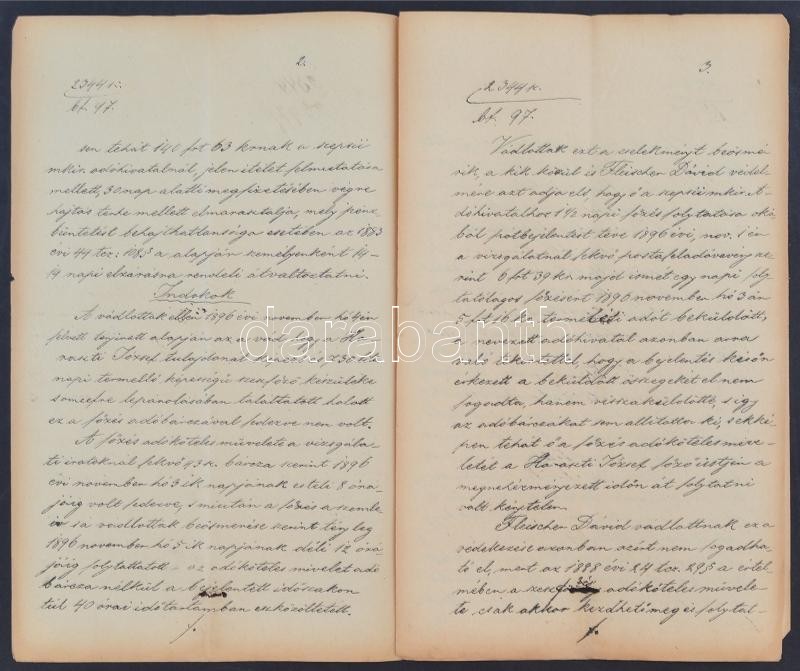 2.
2344 k.
bf. 97.
sen tehát 140 frt 63 krnak a szepsii
m kir. adóhivatalnál, jelen itélet felmutatása
mellett, 30 nap alatti megfizetésében végre
hajtás terhe mellett elmarasztalja, mely pénz
büntetést behajthatlansága esetében az 1883
évi 44 tcz: 108 § a alapján személyenként 14-
14 napi elzárásra rendeli átváltoztatni.
Indokok
A vádlottak ellen 1896 évi november hó 4én
felvett tényirat alapján az a vád, hogy a Ha-
raszti József tulajdonát
napi termelő képességű szeszfőző készüléke
lepárolásában találtatott holott
ez a főzés adóbárczával fedezve nem volt.
A főzés adóköteles művelete a vizsgála-
ti iratoknál fekvő 43 k. bárcza szerint 1896
évi november hó 3ik napjának esteli 8 órá-
jáig volt fedezve, s miután a főzés a szemle
iv s a vádlottak beösmerése szerint tényleg
1896 november hó 5ik napjának déli 12 órá
jáig folytattatott - az adóköteles művelet adó
bárcza nélkül a bejelentett időszakon
túl 40 órai időtartamban eszközöltetett.
3.
2344 k.
bf. 97.
Vádlottak ezt a cselekményt beösme-
rik, a kik közül is Fleischer Dávid védel-
mére azt adja elő, hogy ő a szepsii m kir. a-
dóhivatalhoz 1 1/2 napi főzés folytatása oká-
ból pótbejelentést téve 1896 évi, nov. 1 én
a vizsgálatnál fekvő postafeladóvevény sze-
rint 6 frt 39 kr. majd ismét egy napi foly-
tatólagos főzésért 1896 november hó 3 án
5 frt 16 kr. termelési adót beküldött,
a nevezett adóhivatal azonban arra
való tekintettel, hogy a bejelentés későn
érkezett a beküldött összegeket el nem
fogadta, hanem visszaküldötte, s így
az adóbárczákat sem állította ki, s ekké-
pen tehát ő a főzés adóköteles műve-
letét a Haraszti József főzőüstjén a
megnehezményezett időn át folytatni
volt kénytelen.
Fleischer Dávid vádlottnak ez a
védekezése azonban azért nem fogadha-
tó el, mert az 1888 évi 24 tcz. 29 § a értel-
mében a szeszfőzés adóköteles művele-
te, csak akkor kezdhető meg és folytat-
darabanth